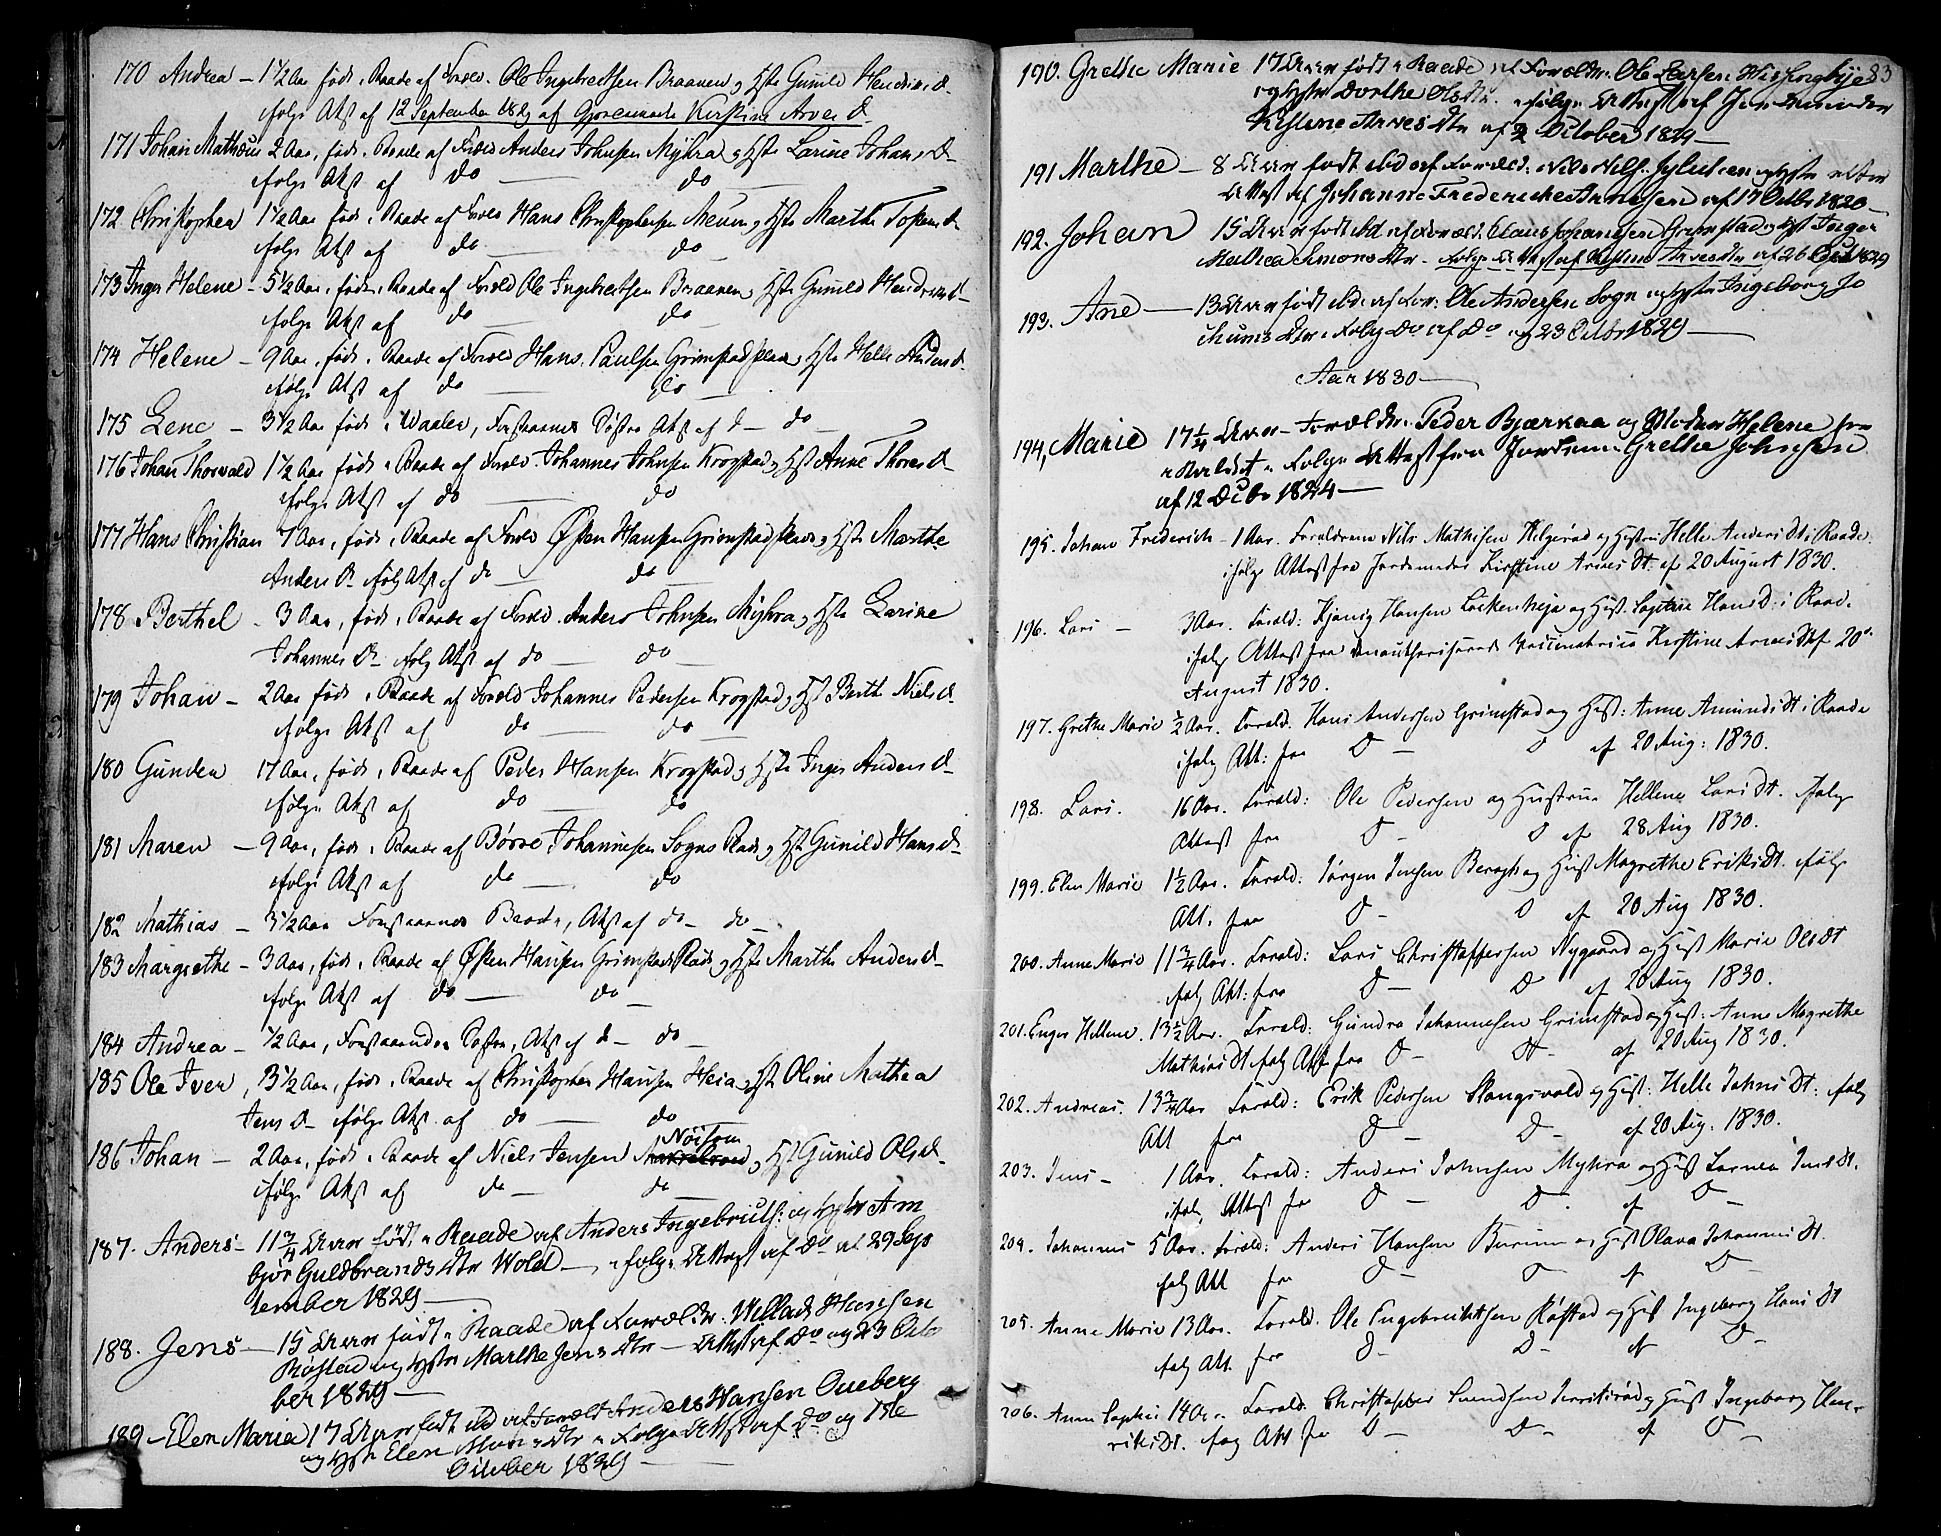 170 Andrea – 1½ Aar født i Raade af Foræld. Ole Ingebretsen Braanen og Hst Gunild Hendrics d.
ifølge Atst af 12 September 1829 af Kirstine Arves d
171 Johan Mathæus 2 Aar, født i Raade af Foræld Anders Johnsen Myhra og Hst Larine Johans D–
ifølge Atst af do — do —
172 Christopher 1½ Aar født i Raade af Foræld Hans Christophersen og Hst Marthe D
ifølge Atst af do — do —
173 Inger Helene – 5½ Aar, født i Raade af Foræld Ole Ingebretsen Braanen og Hst Gunild Hendrics d–
ifølge Atst af do — do —
174 Helene – 9 Aar, født i Raade af Foræld Hans Paulsen Grimstadplads og Hst Helle Anders d.
ifølge Atst af do — do —
175 Lene – 3½ Aar født i Waaler, Forstaaende Søster Atst af do – do –
176 Johan Thorvald 1½ Aar født i Raade af Foræld. Johannes Johnsen Krogstad og Hst Anne Thores d–
ifølge Atst af do — do
177 Hans Christian 7 Aar, født i Raade af Foræld Østen Hansen Grimstadplads og Hst Marthe
Anders D– ifølg Atst af do — do —
178 Berthel – 3 Aar, født i Raade af Foræld. Anders Johnsen Myhra og Hst Larine
Johannes D– ifølg Atst af do — do —
179 Johan – 2 Aar født i Raade af Foræld Johannes Pedersen Krogstad og Hst Berthe Niels d.
ifølge Atst af do — do —
180 Gunder 17 Aar, født i Raade af Peder Hansen Krogstad og Hst Inger Anders d–
ifølge Atst af do — do
181 Maren – 9 Aar, født i Raade af Børre Johannesen Sogns Plads og Hst Gunild Hans d–
ifølge Atst af do — do
182 Mathias – 3½ Aar Forstaaende Atst af do – do –
183 Margrethe – 3 Aar, født i Raade af Østen Hansen Grimstads Plads og Hst Marthe Anders d–
ifølge Atst af do — do —
184 Andrea – ½ Aar, Forstaaendes Søster, Atst af do – do –
185 Ole Iver, 13½ Aar, født i Raade af Christopher Hansen Heia og Hst Oline Mathea
Jens D– ifølge Atst af do — do
186 Johan – 2 Aar, født i Raade af Niels Jensen Nöisom og Hst Gunild Ols d–
ifølge Atst af do – do —
187. Anders – 11¾ Aar født i Raade af Anders Ingebrets: og Hstr Am
bjør Guldbrands Dtr Wold — ifølge Attest af Do af 29 Sep
tember 1829 —
188. Jens – 15 Aar født i Raade af Forældr. Willads Hansen
Røstad og Hstr Marthe Jens Dtr – Attst af Do og 23 Octo
ber 1829 —
189 – Elen Maria 17 Aar født ibd af Foræld Anders Hansen Oueberg
og Hstr Elen Dtr ifølge Attst af Do og 1ste
October 1829 —
190. Grethe Marie 17 Aar født i Raade af Forældr. Ole Larsen 83
og Hstr Dorthe Olsdtr. ifølge Attest af Jordemoder
Kistene Arves dtr af 2 October 1829 —
191 Marthe – 8 Aar født ibd af Foræld. Nils Nils. og Hstr efter
Attest af Johanne Frederickke Arnesen af 17 Octbr 1820 —
192. Johan 15 Aar født ibd af Foræld. Claus Johannesen Grimstad og Hst Inger
Mathea Simons Dtr – ifolge Attest af Kistine Arvesdtr af 26 1829
193. Ane — 13 Aar født ibd. af For: Ole Andersen Sogn og Hstr Ingeborg Jo
Dtr. ifølg Do af Do og 23 Octbr 1829 —
Aar 1830 —
194, Marie 17¼ Aar – Forældr. Peder Bjærkaa og Moder Helene
ifølge Attest fra Jordem: Grethe Johnsen
af 12 1824 —
195. Johan Frederich – 1 Aar. Forældrene Nils Mathisen Helgerød og Hustru Helle Anders Dt i Raade.
ifølge Attest fra Jordemoder Kirstine Arves Dt. af 20 August 1830.
196. Lars – 3 Aar. Foræld: Hansen og Hust. Sophie Hans D: i Raad.
ifølg Attest fra Kirstine Arves Dt af 20de
August 1830.
197. Grethe Marie ½ Aar. Foræld. Hans Andersen Grimstad og Hust: Anne Amunds Dt i Raade
ifølg Att: fra D – D af 20 Aug: 1830.
198. Lars. 16 Aar. Foræld: Ole Pedersen og Hustrue Hellene Lars Dt. ifølg
Attest fra D – D af 28 Aug 1830.
199. Elen Marie 1½ Aar. Foræld: Jørgen Jensen Bergh og Hust Magrethe Eriks Dt. ifølg
Att. fra D – D af 20 Aug 1830.
200. Anne Marie 11¾ Aar. Foræld: Lars Christophersen Nygaard og Hust Marie Ols Dt
ifølg Att: fra D – D af 20 Aug 1830.
201. Inger Hellene. 13½ Aar. Foræld: Gundro Johannesen Grimstad og Hust: Anne Magrethe
Mathias Dt ifølg Att fra D – D – af 20 Aug 1830.
202. Andreas. 13¾ Aar Foræld: Erik Pedersen Slangsvold og Hust: Helle Johns Dt. ifølg
Att fra D – D – af 20 Aug. 1830.
203. Jens – 1 Aar. Foræld: Anders Johnsen Myhra og Hust Larnea Jens Dt.
ifølg Attest fra D – D – af D –
204. Johannes 5 Aar. Foræld: Anders Hansen og Hust Olava Johannes Dt.
ifølg Att fra D – D – af D –
205. Anne Marie 13 Aar. Foræld. Ole Engebrethsen Røstad og Hust Ingeborg Hans Dt
ifølg Att. fra D – D – af D –
206. Anne Sophie 14 Aar. Foræld. Christopher Svendsen og Hust Ingeborg Hen-
riks Dt. ifølg Att fra D – D – af D –